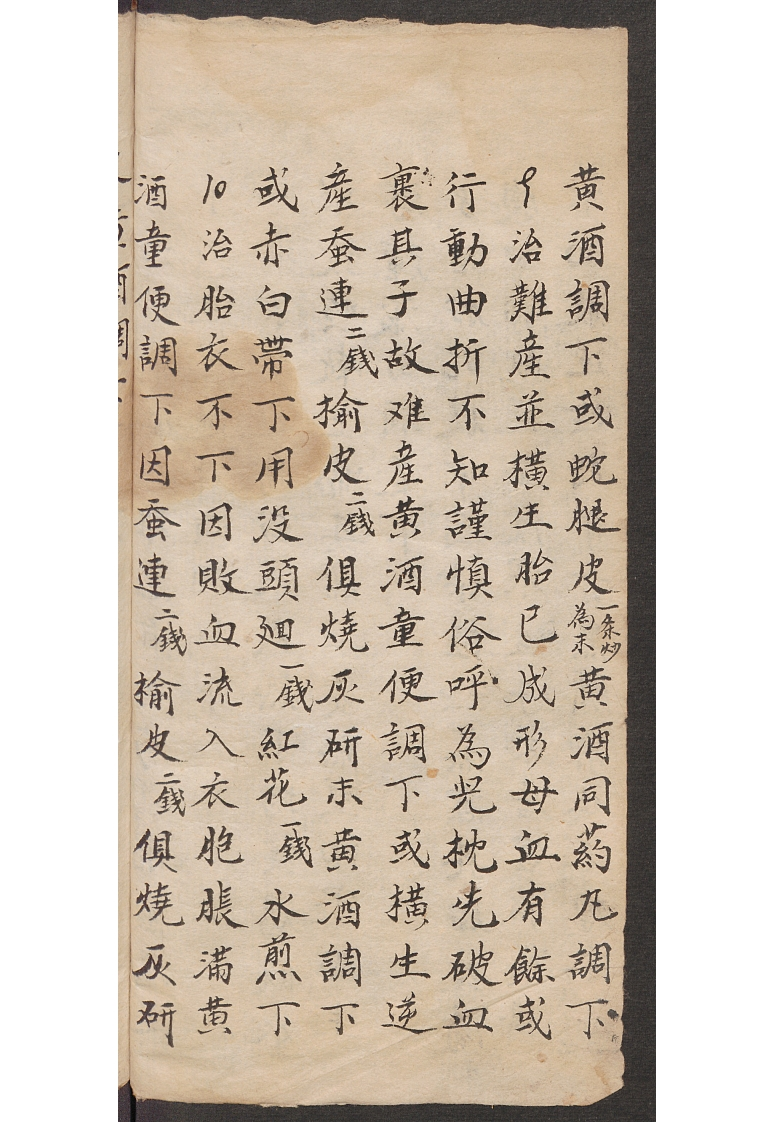 黃酒調下或蛇腿皮一条炒為末黃酒同药丸調下
9治難産並橫生胎已成形母血有餘或
行動曲折不知謹慎俗呼為兒枕先破血
裹其子故难産黃酒童便調下或橫生逆
産蚕連二錢榆皮二錢俱燒灰研末黃酒調下
或赤白帶下用没頭廻一錢紅花一錢水煎下
10治胎衣不下因敗血流入衣胞脹滿黃
酒童便調下因蚕連二錢榆皮二錢俱燒灰研